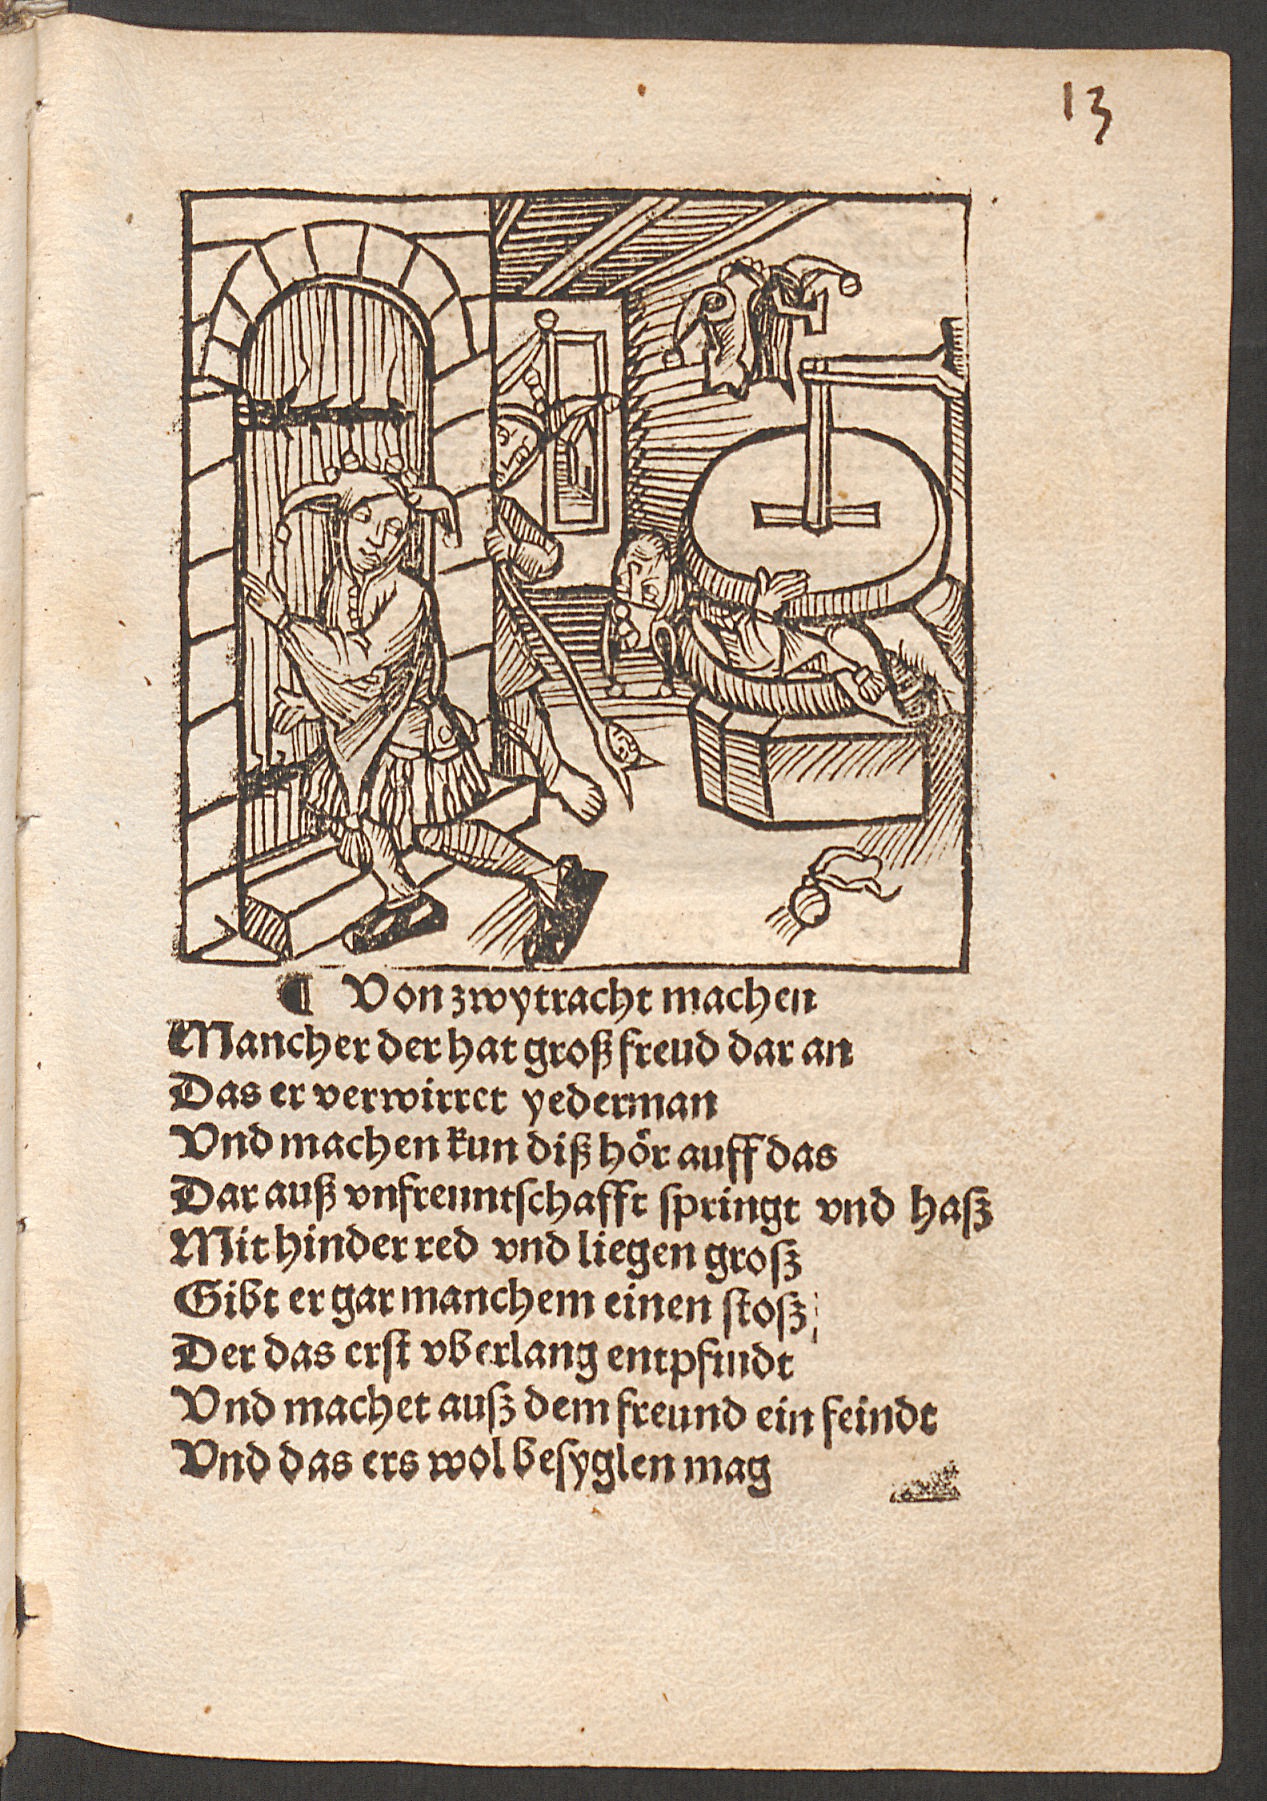 13
¶ Von zwytracht machen
Mancher der hat groß freud dar an
Das er verwirret yederman
Vnd machen kun diß hör auff das
Dar auß vnfreuntschafft springt vnd hasz
Mit hinder red vnd liegen grosz
Gibt er gar manchem einen stosz
Der das erst vberlang entpfindt
Vnd machet ausz dem freund ein feindt
Vnd das ers wol besyglen mag